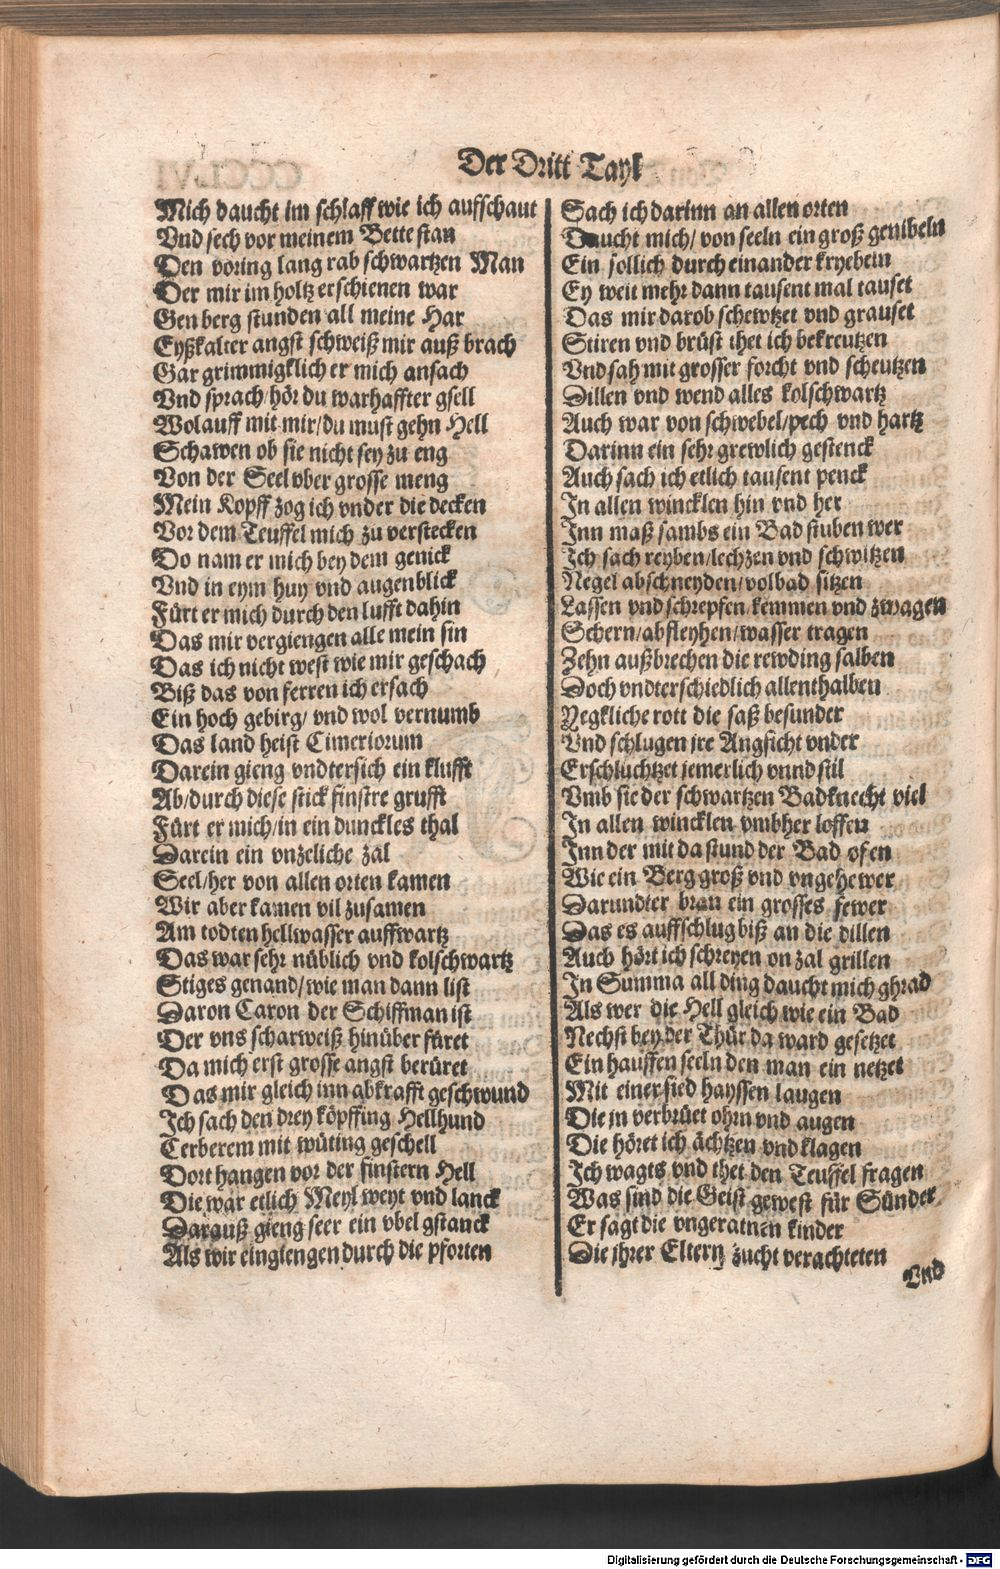 Der Dritt Tayl
Mich daucht im schlaff wie ich aufschaut
Vnd sech vor meinem Bette stan
Den voring lang rab schwartzen Man
Der mir im holtz erschienen war
Gen berg stunden all meine Har
Eyßkalter angst schweiß mir auß brach
Gar grimmigklich er mich ansach
Vnd sprach/hör du warhaffter gsell
Wolauff mit mir/du must gehn Hell
Schawen ob sie nicht sey zu eng
Von der Seel vber grosse meng
Mein Kopff zog ich vnder die decken
Vor dem Teuffel mich zu verstecken
Do nam er mich bey dem genick
Vnd in eym huy vnd augenblick
Fürt er mich durch den lufft dahin
Das mir vergiengen alle mein sin
Das ich nicht west wie mir geschach
Biß das von ferren ich ersach
Ein hoch gebirg/ vnd wol vernumb
Das land heist Cimeriorum
Darein gieng vndtersich ein klufft
Ab/durch diese stick finstre grufft
Fürt er mich/in ein dunckles thal
Darein ein vnzeliche zal
Seel/her von allen orten kamen
Wir aber kamen vil zusamen
Am todten hellwasser auffwartz
Das war sehr nüblich vnd kolschwartz
Stiges genand/wie man dann list
Daron Caron der Schiffman ist
Der vns scharweiß hinüber füret
Da mich erst grosse angst berüret
Das mir gleich inn abkrafft geschwund
Ich sach den drey köpffing Hellhund
Cerberem mit wüting geschell
Dort hangen vor der finstern Hell
Die war etlich Meyl weyt vnd lanck
Darauß gieng seer ein vbel gstanck
Als wir eingiengen durch die pforten
Sach ich darinn an allen orten
Daucht mich/ von seeln ein groß genibeln
Ein sollich durch einander kryebeln
Ey weit mehr dann tausent mal tauset
Das mir darob schewtzet vnd grauset
Stiren vnd brüst thet ich bekreutzen
Vnd sah mit grosser forcht vnd scheutzen
Dillen vnd wend alles kolschwartz
Auch war von schwebel/pech vnd hartz
Darinn ein sehr grewlich gestenck
Auch sach ich etlich tausent penck
In allen wincklen hin vnd her
Inn maß sambs ein Bad stuben wer
Ich sach reyben/lechzen vnd schwitzen
Negel abschneyden/volbad sitzen
Lassen vnd schrepfen/kemmen vnd zwagen
Schern/abfleyhen/wasser tragen
Zehn außbrechen die rewding salben
Doch vndterschiedlich allenthalben
Yegkliche rott die saß besunder
Vnd schlugen jre Angsicht vnder
Erschluchtzet jemerlich vnnd stil
Vmb sie der schwartzen Badknecht viel
In allen wincklen vmbher loffen
Inn der mit da stund der Bad ofen
Wie ein Berg groß vnd vngehewer
Darundter bran ein grosses fewer
Das es auffschlug biß an die dillen
Auch hört ich schreyen on zal grillen
In Summa all ding daucht mich ghrad
Als wer die Hell gleich wie ein Bad
Nechst bey der Thür da ward gesetzet
Ein hauffen seeln den man ein netzet
Mit einer sied hayssen laugen
Die jn verbrüet ohrn vnd augen
Die höret ich ächtzen vnd klagen
Ich wagts vnd thet den Teuffel fragen
Was sind die Geist gewest für Sünder
Er sagt die vngeratnen kinder
Die jhrer Eltern zucht verachteten
Vnd
Digitalisierung gefördert durch die Deutsche Forschungsgemeinschaft - DFG